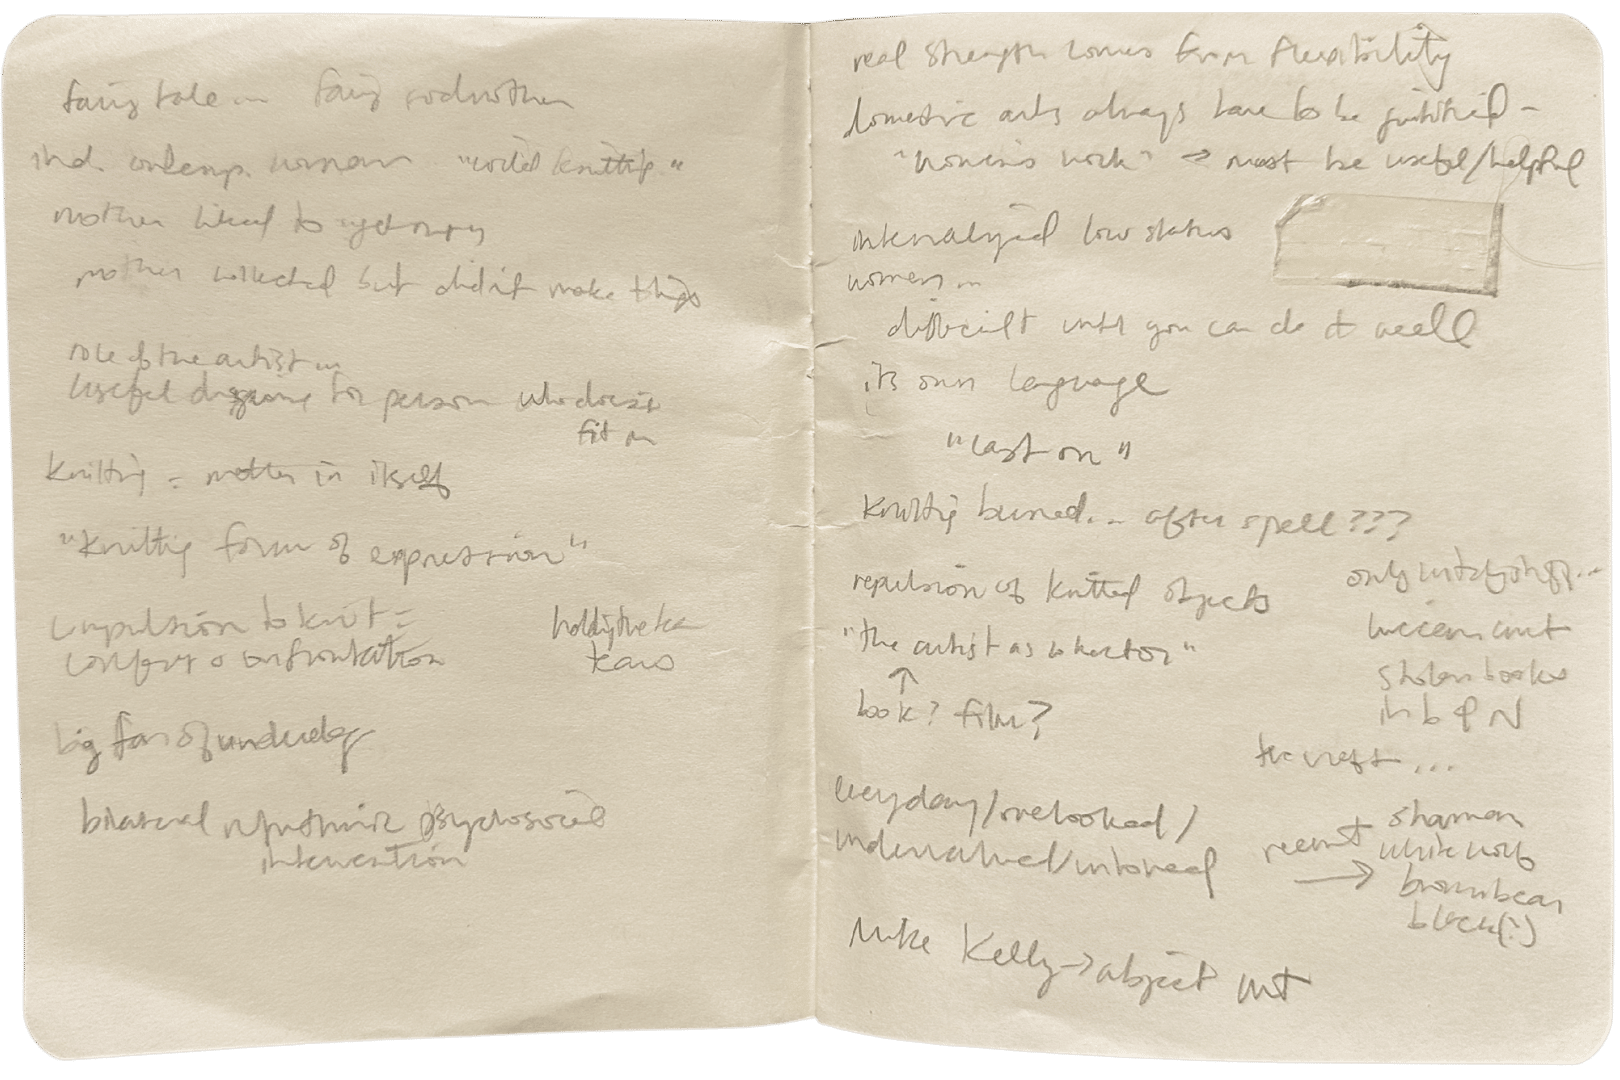 fairy tale — fairy godmother
women "wild knitting"
mother liked to
mother collected but didn't make things
role of the artist in
useful for person who doesn't
fit in
Knitting = matter in itself
"Knitting form of expression"
compulsion to knit =
comfort o confrontation
big fan of underdog
bilateral rhythmic psychosocial
intervention
real strength comes from flexibility
domestic arts always have to be justified -
"women's work" → must be useful/helpful
internalized low status
women...
difficult until you can do it well
its own language
"cast on"
Knitting burned... after spell???
repulsion of knitted objects
"the artist as
↑
book? film?
everyday/overlooked/
undervalued/
Mike Kelly → abject
only
stolen books
in b P N
the craft...
shaman
white wolf
→ brown bear
black (?)